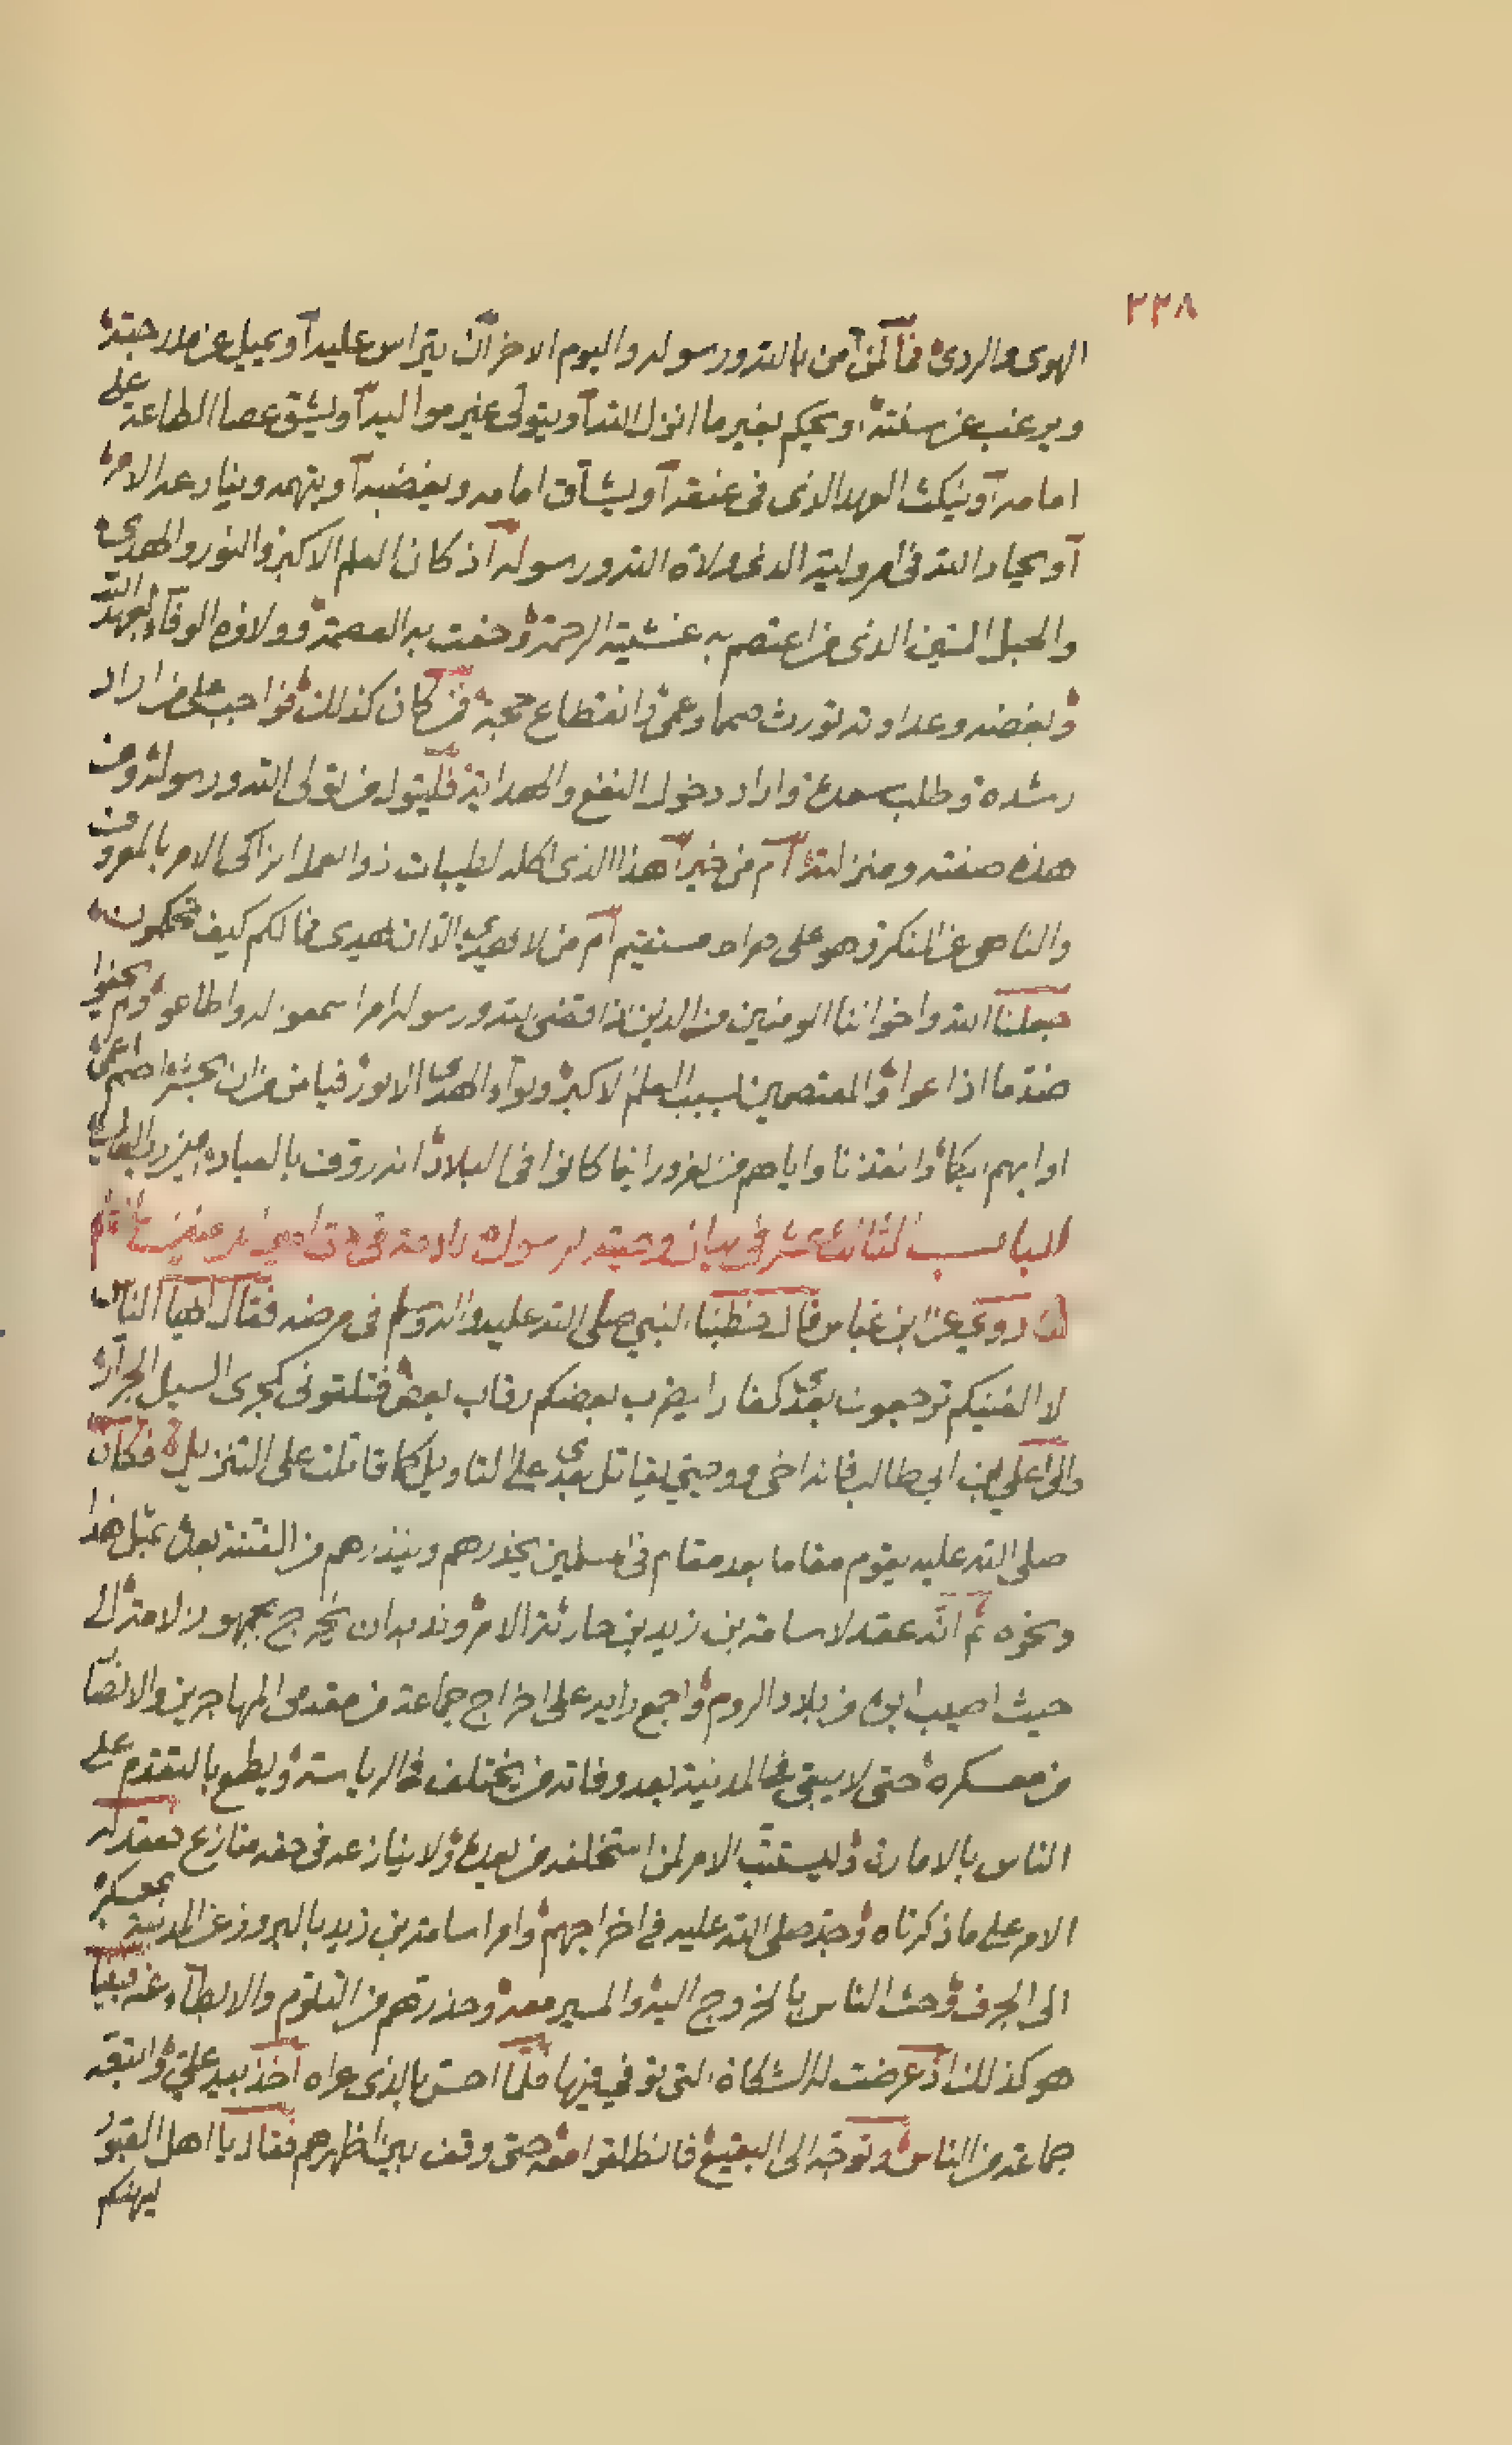 ٢٣٨
الهوى والردى فما لمن آمن بالله ورسوله واليوم الاخر ان يتراس عليه أو يميل عن ملاحبته
ويرغب عن سنته أو يحكم بغير ما انزل الله أو يتولى غير مواليه أو يشق عصا الطاعة على
امامه أو ينكث العهد الذى فى عنقه أو يشاق امامه ويغضبه أو يتهمه وينازعه الامر
أو يحاد الله فى امر وليه الذى ولاه الله ورسوله اذ كان العلم الاكبر والنور والهدى
والحبل المتين الذى من اعتصم به غشيته الرحمة وحفت به العصمة وولاؤه الوفاء بعهد الله
وبغضه وعداوته تورث صمما وعمى وانقطاع حجة فمن كان كذلك فواجب على من اراد
رشده وطلب سعده واراد دخول النفع والهداية فليتول من تولى الله ورسوله ومن
هذه صفته ومنزلته أم من خير أهذا الذى اكله لطيبات ذو العمل الزاكى الامر بالمعروف
والناهى عن المنكر وهو على صراط مستقيم أم من لا يهدى الا ان يهدى فما لكم كيف تحكمون
جعلنا الله واخواننا المومنين من الذين اذا قضى الله ورسوله امرا سمعوا له واطاعوا ولم يخفوا
ضده ما اذاعوا والمعتصمين بسبب العلم الاكبر ولواء الهدى الانور فيا من من ان يحشر اصم اعمى
او ابهم ابكم وانقذنا واياهم من الغرور اينما كانوا فى البلاد انه رؤوف بالعباد امين رب العالمين
الباب الثالث عشر فى بيان وصيته لرسول الله
روى عن ابن عباس قال خطبنا النبى صلى الله عليه واله وسلم فى مرضه فقال ايها الناس
لا الفينكم ترجعون بعدى كفارا يضرب بعضكم رقاب بعض فتلقونى كمجرى السيل الجرار
والى على بن ابى طالب فانه اخى ووصيتى يقاتل بعدى على التاويل كما قاتلت على التنزيل فكان
صلى الله عليه يقوم مقاما بعد مقام فى المسلمين يحذرهم وينذرهم من الفتنة بعده بمثل هذا
ونحوه ثم انه عقد لاسامة بن زيد بن حارثة الامر وندبه ان يخرج بجمهور الامة الى
حيث اصيب ابوه من بلاد الروم واجمع رايه على اخراج جماعة من مقدمى المهاجرين والانصار
من معسكره حتى لا يبقى فى المدينة بعد وفاته من يختلف فى الرياسة ويطمع بالتقدم على
الناس بالامارة وليستتب الامر لمن استخلفه من بعده ولا ينازعه فى حقه منازع فعقد له
الامر على ما ذكرناه وجد صلى الله عليه فى اخراجهم وامر اسامة بن زيد بالبروز عن المدينة بمعسكره
الى الجرف وحث الناس بالخروج اليه والمسير معه وحذرهم من التلوم والابطاء عنه فبينا
هو كذلك اذ عرضت له الشكاة التى توفى فيها فلما احس بالذى عراه اخذ بيد على واتبعه
جماعة من الناس وتوجه الى البقيع فانطلقوا معه حتى وقف بين اظهرهم فقال يا اهل القبور
ليهنكم